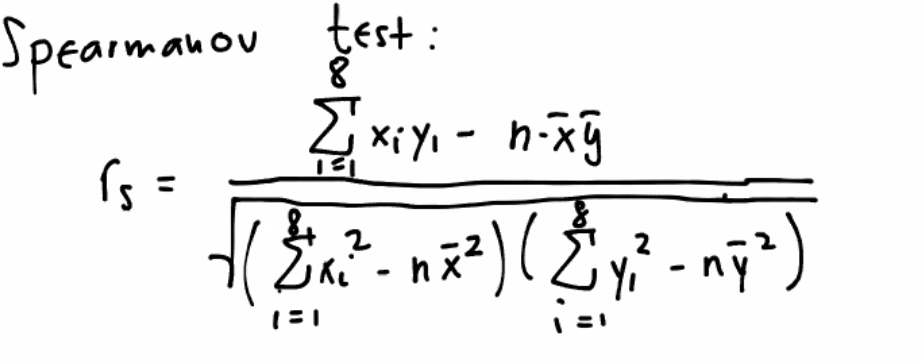 Spearmanov test:
r_s = \frac{\sum_{i=1}^{8} x_i y_i - n \cdot \bar{x} \bar{y}}{\sqrt{\left( \sum_{i=1}^{8} x_i^2 - n \bar{x}^2 \right) \left( \sum_{i=1}^{8} y_i^2 - n \bar{y}^2 \right)}}